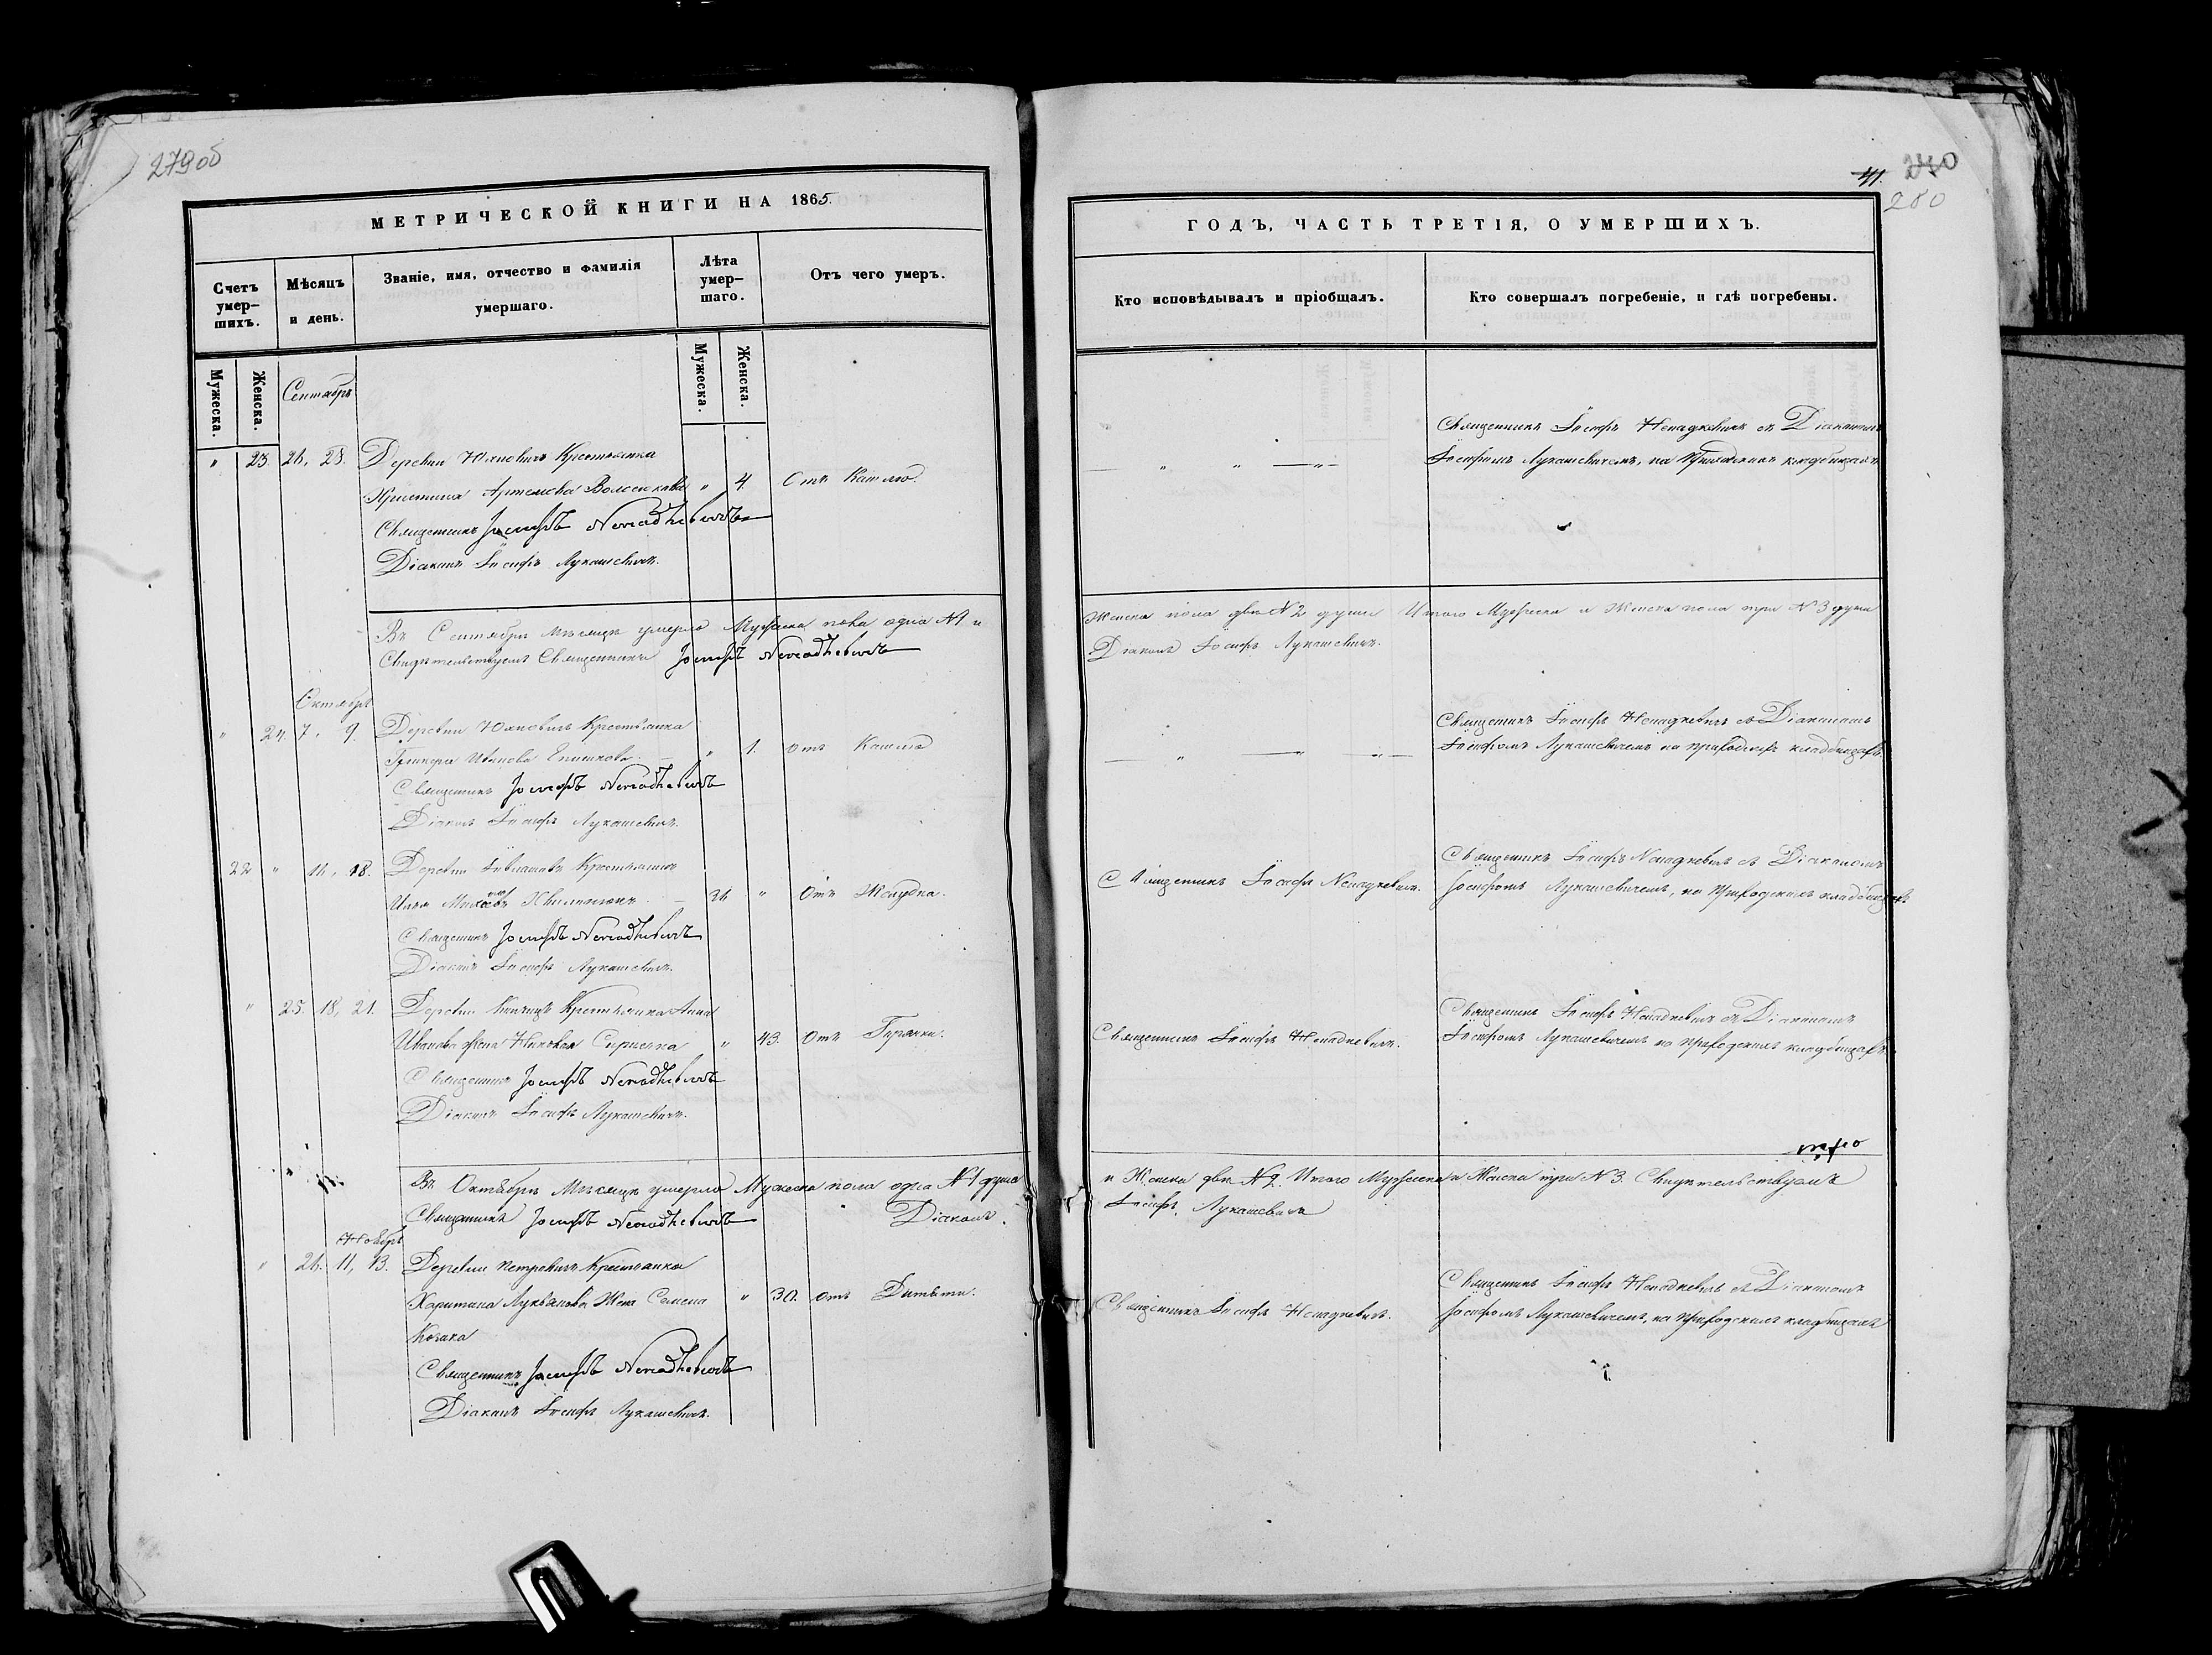 279об
МЕТРИЧЕСКОЙ КНИГИ НА 1865.
Счетъ умер-шихъ.
Мѣсяцъ и день.
Званіе, имя, отчество и фамилія умершаго.
Лѣта умер-шаго.
Отъ чего умеръ.
Мужеска.
Женска.
Мужеска.
Женска.
Сентябрь
" 23. 26, 28. Деревни Юхновичъ Крестьянка
Христина Артемова " 4. Отъ Кашлю.
Священникъ Іосифъ Ненадкевичъ
Діаконъ Іосифъ Лукашевичъ.
Въ Сентябрѣ мѣсяцѣ умерло Мужеска пола одна №1 и
Свидѣтельствуемъ Священникъ Іосифъ Ненадкевичъ
Октябрь
" 24. 7, 9. Деревни Юхновичъ Крестьянка
Ивановa " 1. отъ Кашлю
Священникъ Іосифъ Ненадкевичъ
Діаконъ Іосифъ Лукашевичъ.
22 " 16, 18. Деревни Крестьянинъ
Илья " Отъ Желудка.
Священникъ Іосифъ Ненадкевичъ
Діаконъ Іосифъ Лукашевичъ.
" 25. 18, 21. Деревни Крестьянка Анна
Иванова жена " 43. Отъ Горячки.
Священникъ Іосифъ Ненадкевичъ
Діаконъ Іосифъ Лукашевичъ.
Въ Октябрѣ Мѣсяцѣ умерло Мужеска пола одна №1 душа
Священникъ Іосифъ Ненадкевичъ Діаконъ
Ноябрь
" 26. 11, 13. Деревни Петровичъ Крестьянка
Харитина Лукьянова Жена Семена " 30. отъ Дитяти.
Козака
Священникъ Іосифъ Ненадкевичъ
Діаконъ Іосифъ Лукашевичъ.
41. 240
280
ГОДЪ, ЧАСТЬ ТРЕТІЯ, О УМЕРШИХЪ.
Кто исповѣдывалъ и пріобщалъ.
Кто совершалъ погребеніе, и гдѣ погребены.
Священникъ Іосифъ Ненадкевичъ съ Діакономъ
Іосифомъ Лукашевичемъ, на Приходскихъ кладбищахъ
Женска пола двѣ №2 души Итого Мужеска и Женска пола три №3 души
Діаконъ Іосифъ Лукашевичъ.
Священникъ Іосифъ Ненадкевичъ съ Діакономъ
Іосифомъ Лукашевичемъ на приходскихъ кладбищахъ.
Священникъ Іосифъ Ненадкевичъ съ Діакономъ
Священникъ Іосифъ Ненадкевичъ.
Іосифомъ Лукашевичемъ, на Приходскихъ кладбищахъ
Священникъ Іосифъ Ненадкевичъ съ Діакономъ
Священникъ Іосифъ Ненадкевичъ.
Іосифомъ Лукашевичемъ на приходскихъ кладбищахъ.
и Женска двѣ №2. Итого Мужеска и Женска три №3. Свидѣтельствуемъ
Іосифъ Лукашевичъ
Священникъ Іосифъ Ненадкевичъ съ Діакономъ
Священникъ Іосифъ Ненадкевичъ.
Іосифомъ Лукашевичемъ, на приходскихъ кладбищахъ